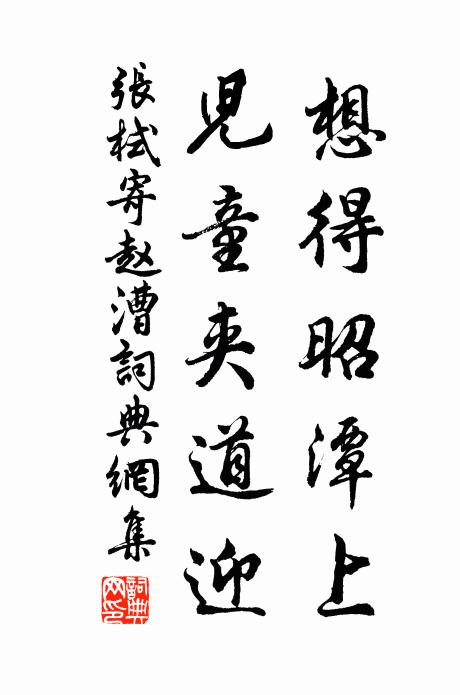 想得昭潭上
兒童夾道迎
張栻寄赵漕詞典網集
詞典网印